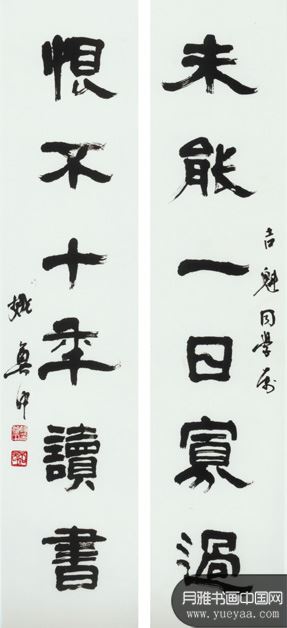 未能一日寡過
吉魁同學属
恨不十年讀書
姚奠中
月雅书画中国网
www.yueyaa.com